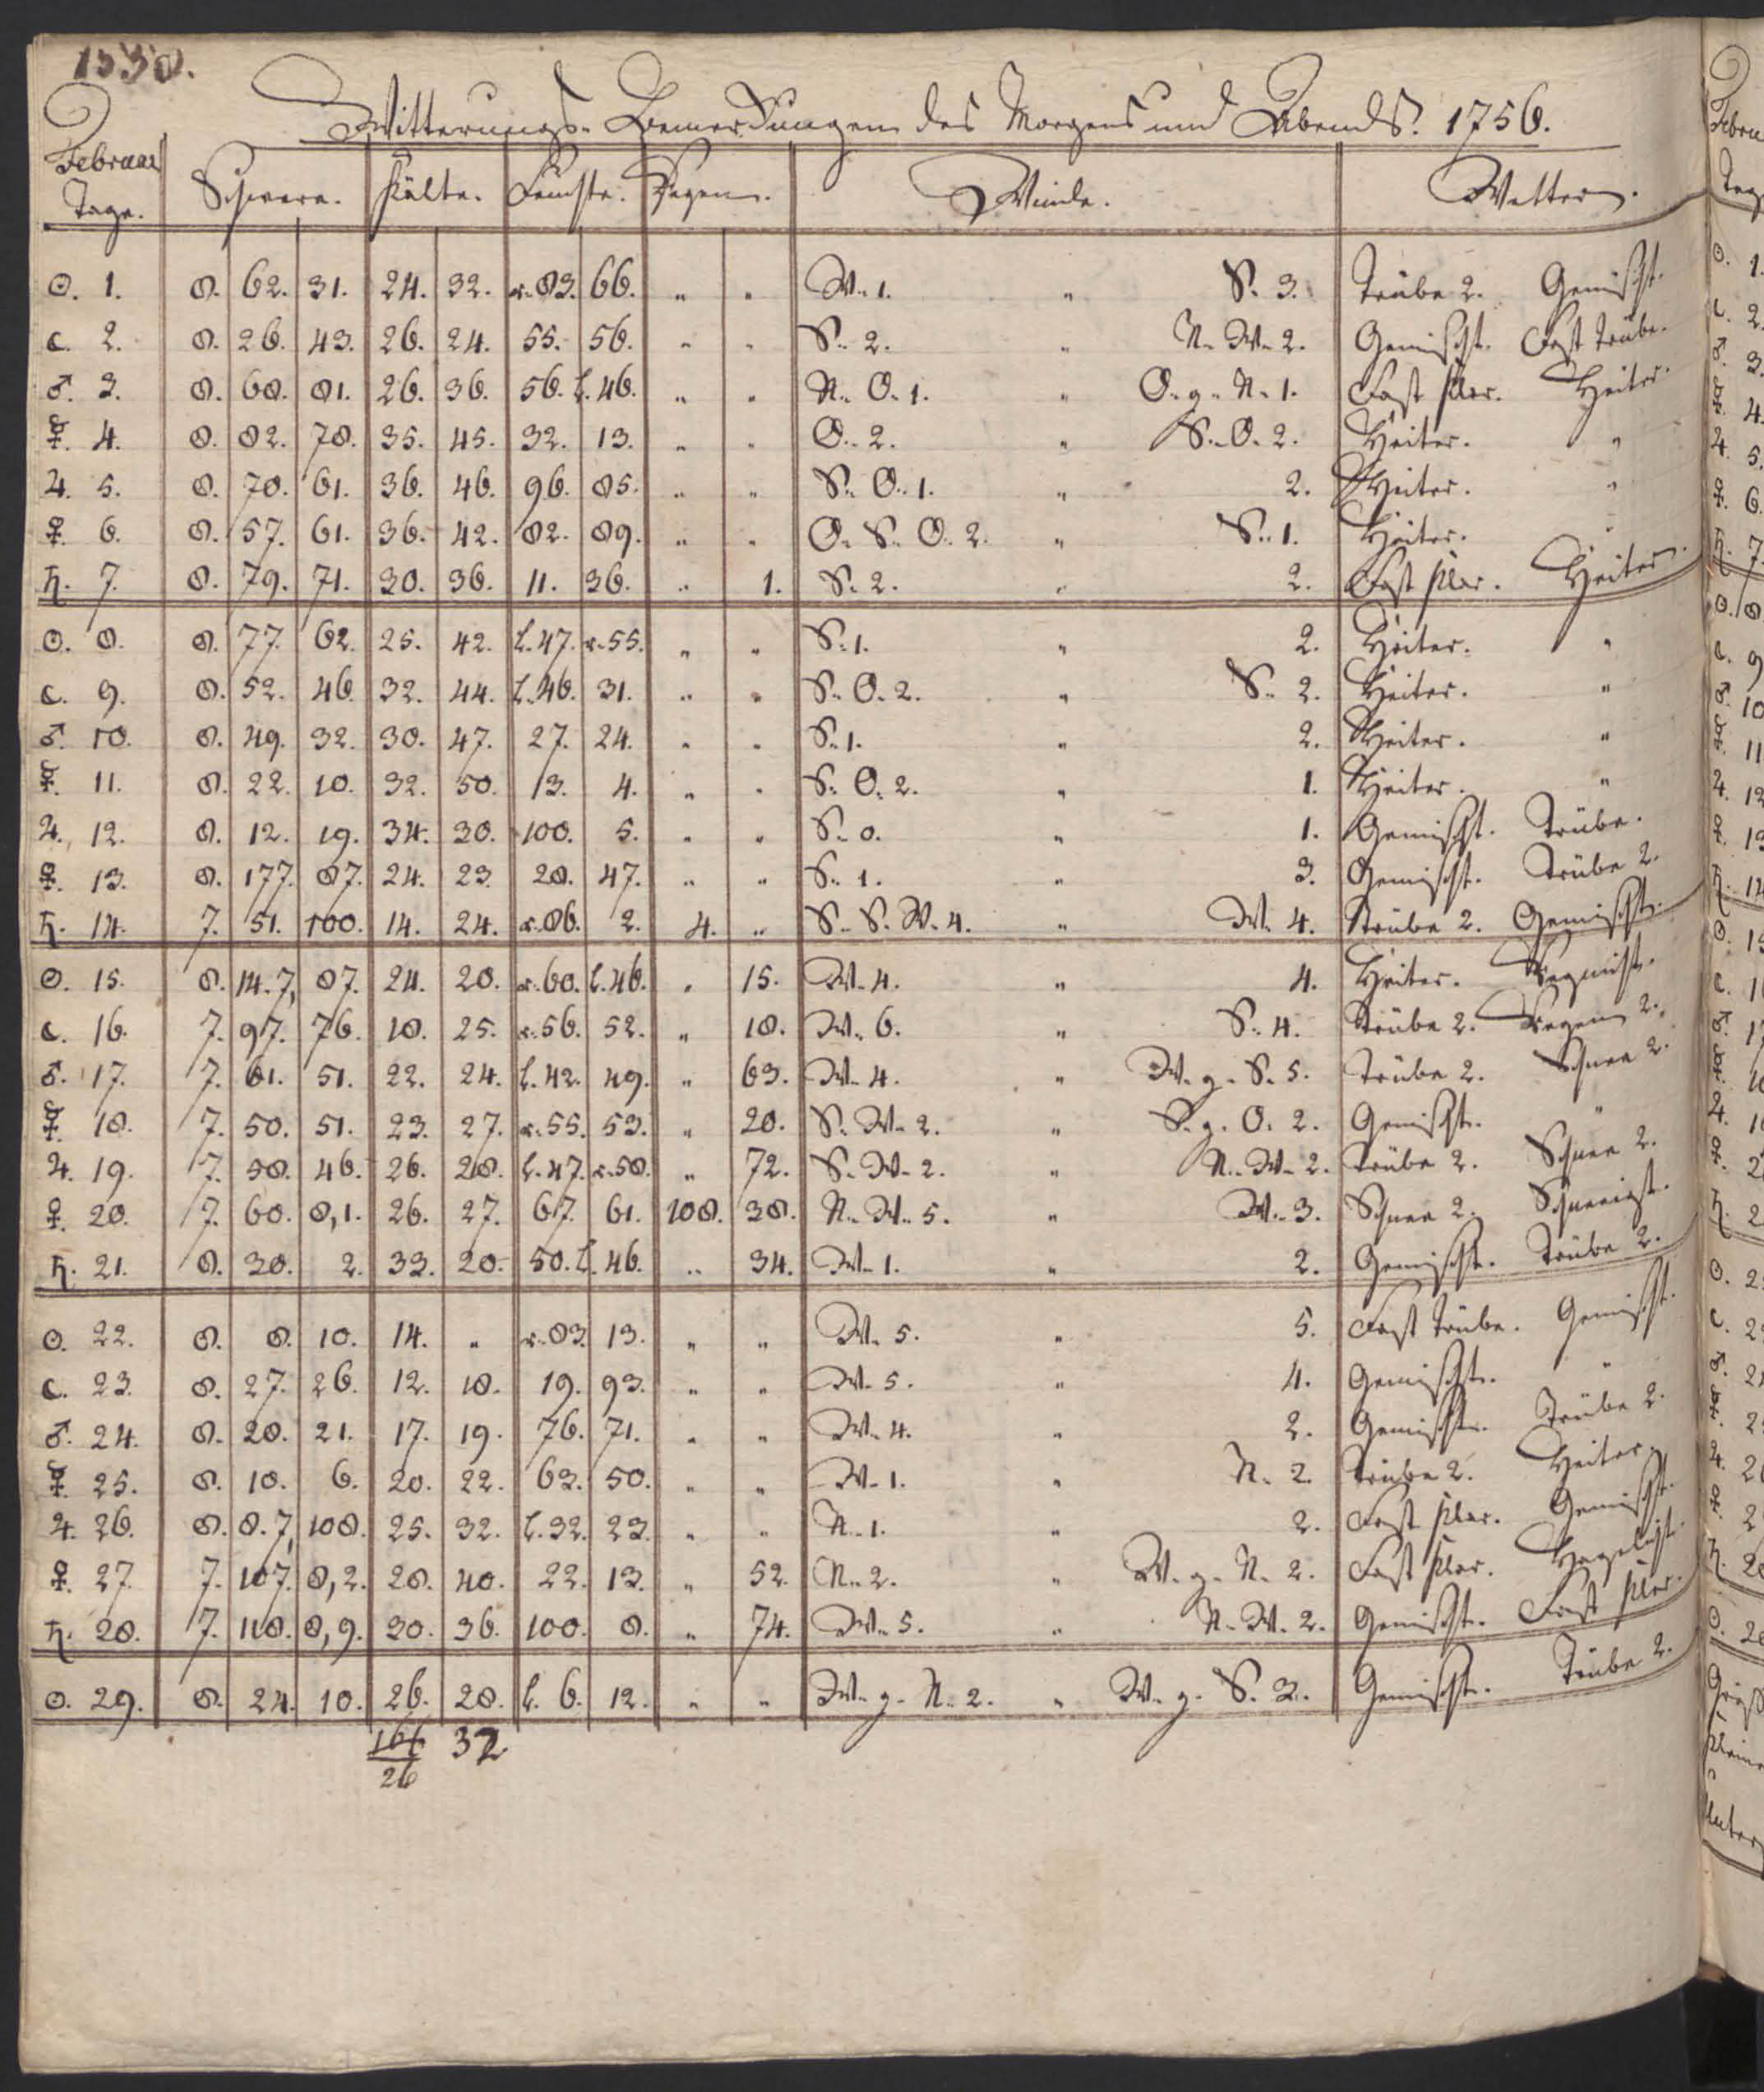 1338.
Witterungs-Bemerkungen des Morgens und Abends. 1756.
Februar Tage. Schwere. Kälte. Feuchte. Regen. Winde. Wetter.
☉. 1. 8. 62. 31. 24. 32. r. 83. 66. " " W. 1. " S. 3. Trübe 2. Gemischt.
☾. 2. 8. 26. 43. 26. 24. 55. 56. " " S. 2. " N. W. 2. Gemischt. Fast trübe.
♂. 3. 8. 68. 81. 26. 36. 56. l. 46. " " N. O. 1. " O. g. N. 1. Fast klar. Heiter.
☿. 4. 8. 82. 78. 35. 45. 32. 13. " " O. 2. " S. O. 2. Heiter. "
♃. 5. 8. 70. 61. 36. 46. 96. 85. " " S. O. 1. " 2. Heiter. "
♀. 6. 8. 57. 61. 36. 42. 82. 89. " " O. S. O. 2. " S. 1. Heiter. "
♄. 7. 8. 79. 71. 30. 36. 11. 36. " 1. S. 2. " 2. Fast klar. Heiter.
☉. 8. 8. 77. 62. 25. 42. l. 47. r. 55. " " S. 1. " 2. Heiter. "
☾. 9. 8. 52. 46. 32. 44. l. 46. 31. " " S. O. 2. " S. 2. Heiter. "
♂. 10. 8. 49. 32. 30. 47. 27. 24. " " S. 1. " 2. Heiter. "
☿. 11. 8. 22. 10. 32. 50. 13. 4. " " S. O. 2. " 1. Heiter. "
♃. 12. 8. 12. 19. 34. 30. 100. 5. " " S. 0. " 1. Gemischt. Trübe.
♀. 13. 8. 177. 87. 24. 23. 28. 47. " " S. 1. " 3. Gemischt. Trübe 2.
♄. 14. 7. 51. 100. 14. 24. r. 86. 2. 4. " S. S. W. 4. " W. 4. Trübe 2. Gemischt.
☉. 15. 8. 14. 7, 87. 24. 20. r. 60. l. 46. " 15. W. 4. " 4. Heiter. Regnicht.
☾. 16. 7. 97. 76. 18. 25. r. 56. 52. " 18. W. 6. " S. 4. Trübe 2. Regen 2.
♂. 17. 7. 61. 51. 22. 24. l. 42. 49. " 63. W. 4. " W. g. S. 5. Trübe 2. Schnee 2.
☿. 18. 7. 50. 51. 23. 27. r. 55. 53. " 20. S. W. 2. " S. g. O. 2. Gemischt. "
♃. 19. 7. 58. 46. 26. 28. l. 47. r. 58. " 72. S. W. 2. " N. W. 2. Trübe 2. Schnee 2.
♀. 20. 7. 60. 8,1. 26. 27. 67. 61. 108. 38. N. W. 5. " W. 3. Schnee 2. Schneeigt.
♄. 21. 8. 30. 2. 33. 20. 50. l. 46. " 34. W. 1. " 2. Gemischt. Trübe 2.
☉. 22. 8. 8. 10. 14. " r. 83. 13. " " W. 5. " 5. Fast trübe. Gemischt.
☾. 23. 8. 27. 26. 12. 18. 19. 93. " " W. 5. " 4. Gemischt. "
♂. 24. 8. 28. 21. 17. 19. 76. 71. " " W. 4. " 2. Gemischt. Trübe 2.
☿. 25. 8. 10. 6. 20. 22. 63. 50. " " W. 1. " N. 2. Trübe 2. Heiter.
♃. 26. 8. 8. 7, 108. 25. 32. l. 32. 23. " " N. 1. " 2. Fast klar. Gemischt.
♀. 27. 7. 107. 8,2. 28. 40. 22. 13. " 52. N. 2. " W. g. N. 2. Fast klar. Hagelicht.
♄. 28. 7. 118. 8,9. 30. 36. 100. 8. " 74. W. 5. " N. W. 2. Gemischt. Fast klar.
☉. 29. 8. 24. 10. 26. 28. l. 6. 12. " " W. g. N. 2. " W. g. S. 2. Gemischt. Trübe 2.
32
26